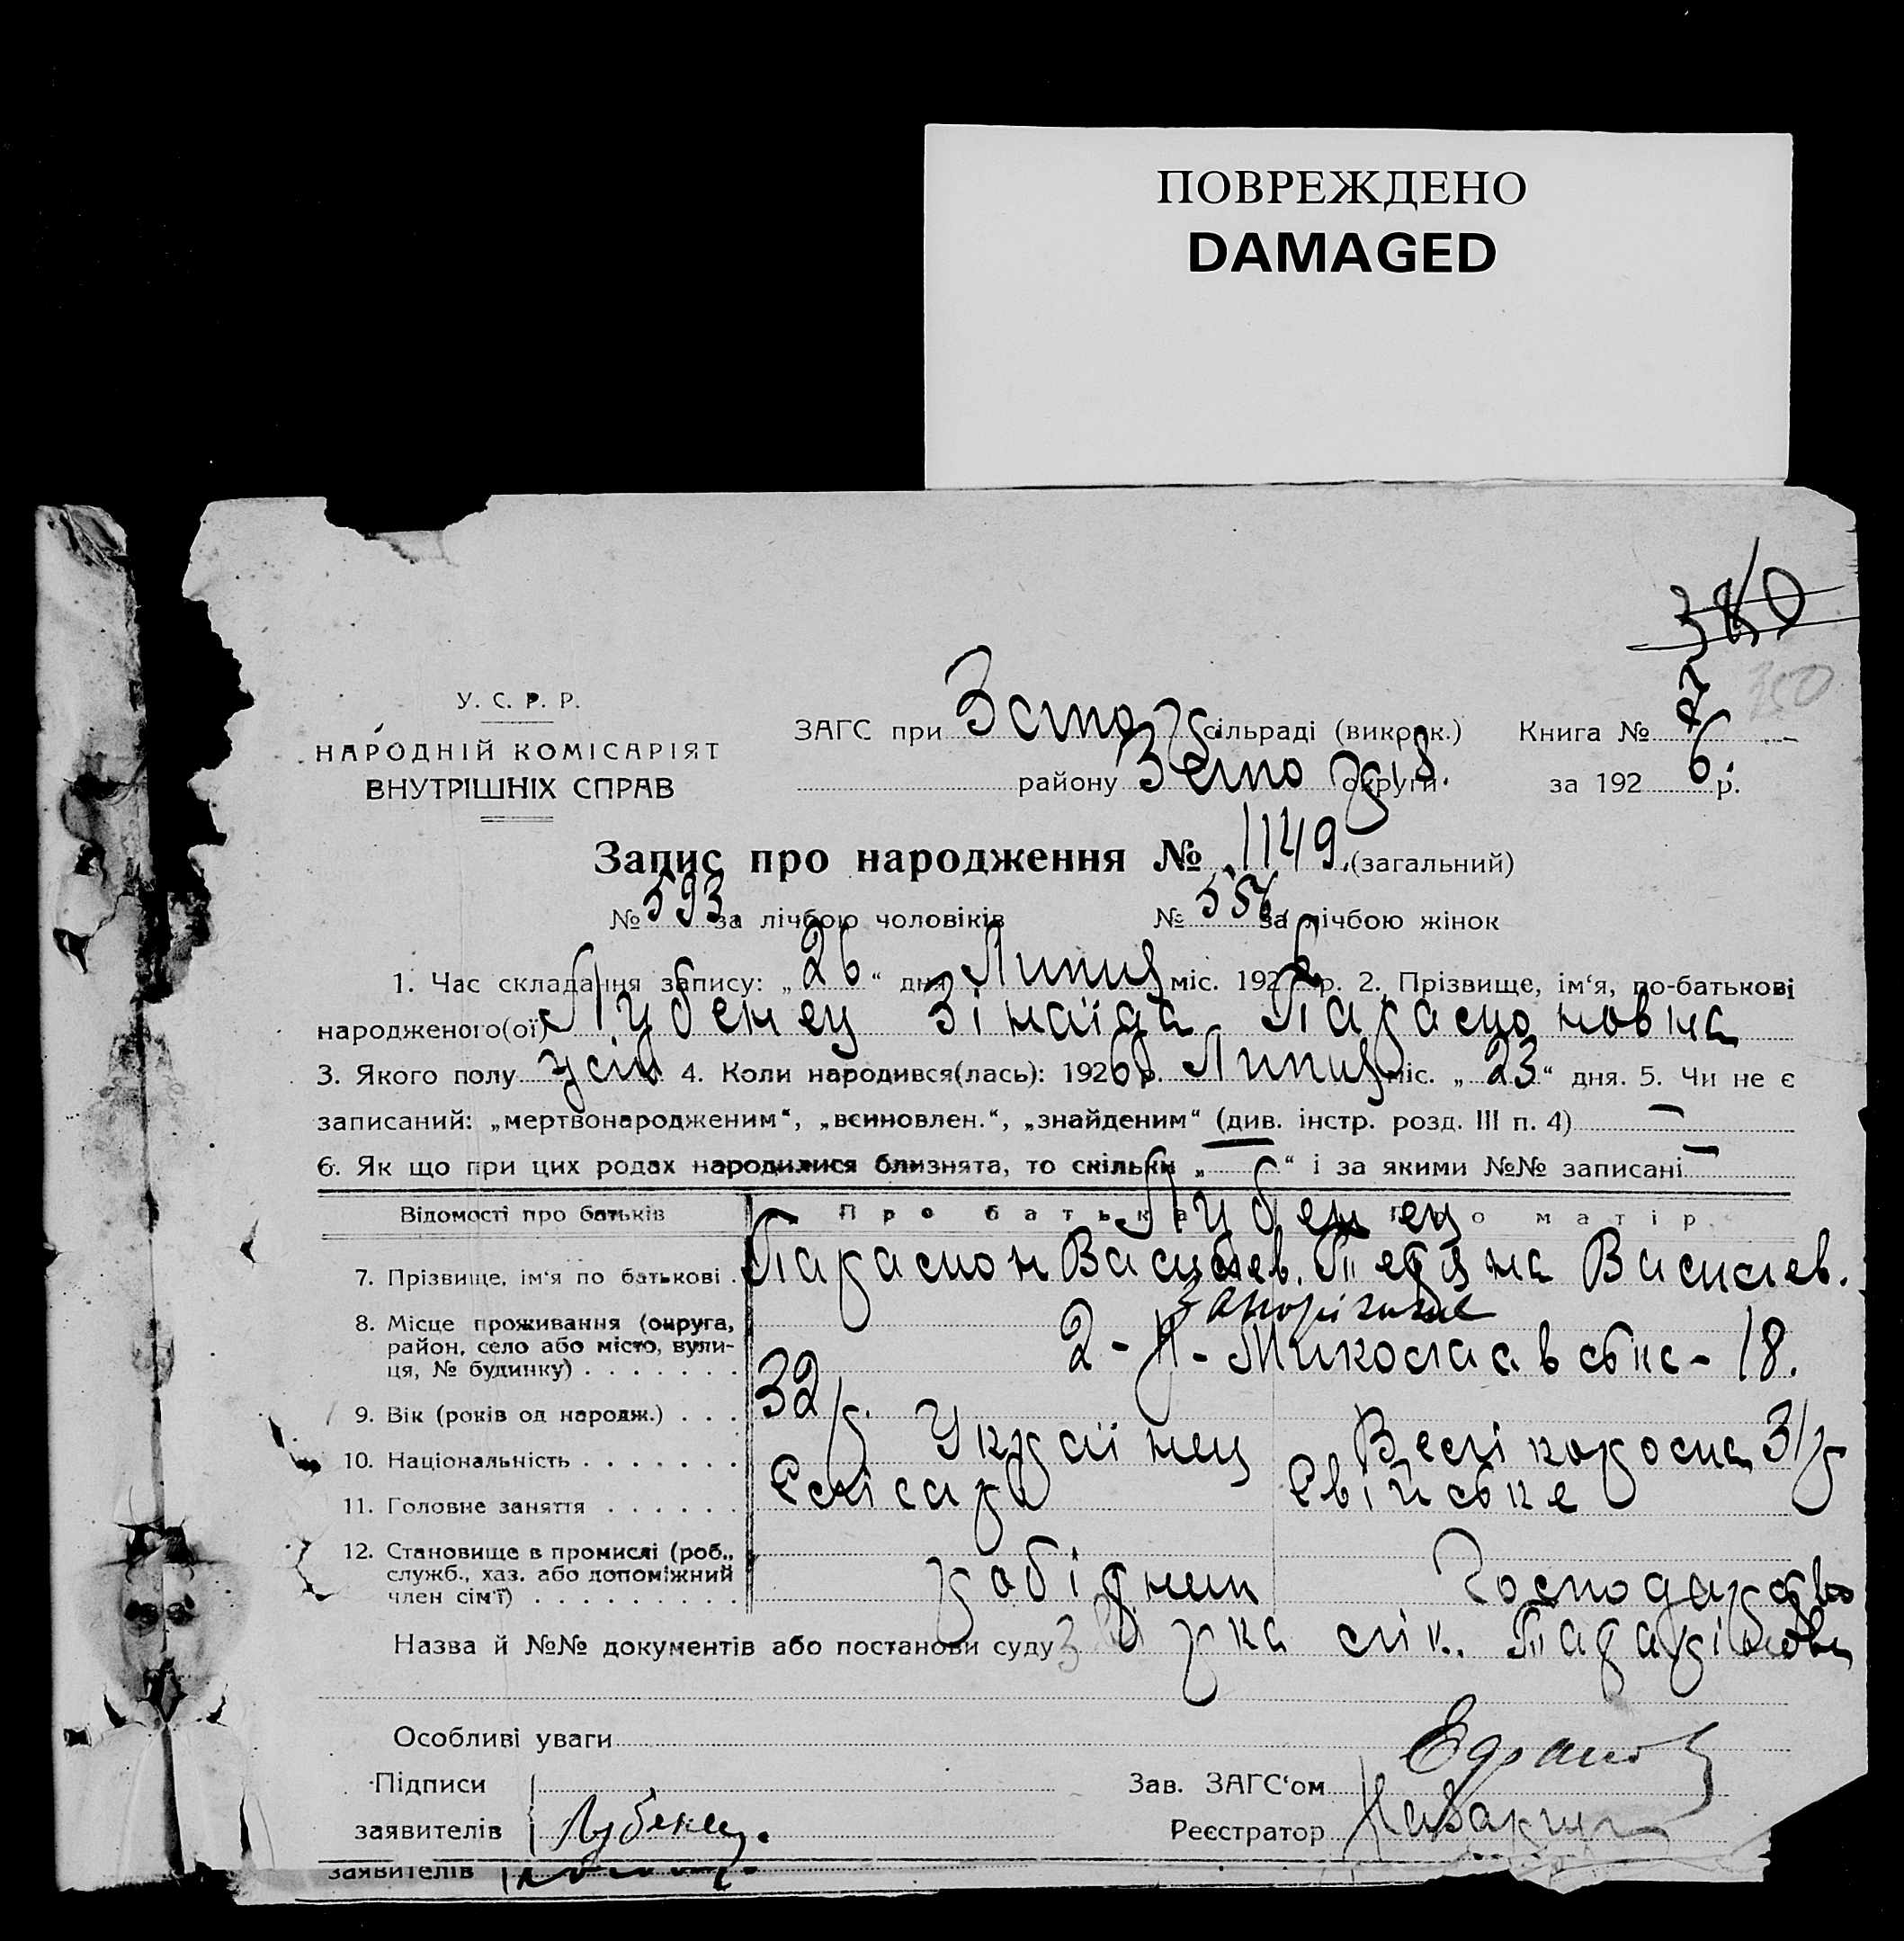 ПОВРЕЖДЕНО
DAMAGED
380
350
У. С. Р. Р.
НАРОДНІЙ КОМІСАРІЯТ
ВНУТРІШНІХ СПРАВ
ЗАГС при сільраді (викорк.) Книга №
району округи за 192 6 р.
Запис про народження № 1149 (загальний)
№ 593 за лічбою чоловіків № 556 за лічбою жінок
1. Час складання запису: „26“ дня Липця міс. 1926 р. 2. Прізвище, ім‘я, по-батькові
народженого(ої) Лубенец Зінаїда Парамоновна
3. Якого полу 4. Коли народився(лась): 1926 р. Липця міс. „23“ дня. 5. Чи не є
записаний: „мертвонародженим“, „всиновлен.“, „знайденим“ (див. інстр. розд. III п. 4) —
6. Як що при цих родах народилися близнята, то скільки „—“ і за якими №№ записані —
Відомості про батьків Про батька Про матір
Лубенец
7. Прізвище, ім‘я по батькові . Парамон Васильев. Васильев.
Запоріжже
8. Місце проживання (округа,
район, село або місто, вули-
ця, № будинку) . . . . . . . 2-
-18.
9. Вік (років од народж.) . . . 32 р. 31 р
10. Національність . . . . . . . Українец Велікороска
11. Головне заняття . . . . . . Слісарь Свійське
12. Становище в промислі (роб.,
служб., хаз. або допоміжний
член сім‘ї) . . . . . . . . . робідник Господарство
Назва й №№ документів або постанови суду
Особливі уваги
Підписи Зав. ЗАГС‘ом
заявителів Лубенец. Реєстратор
заявителів